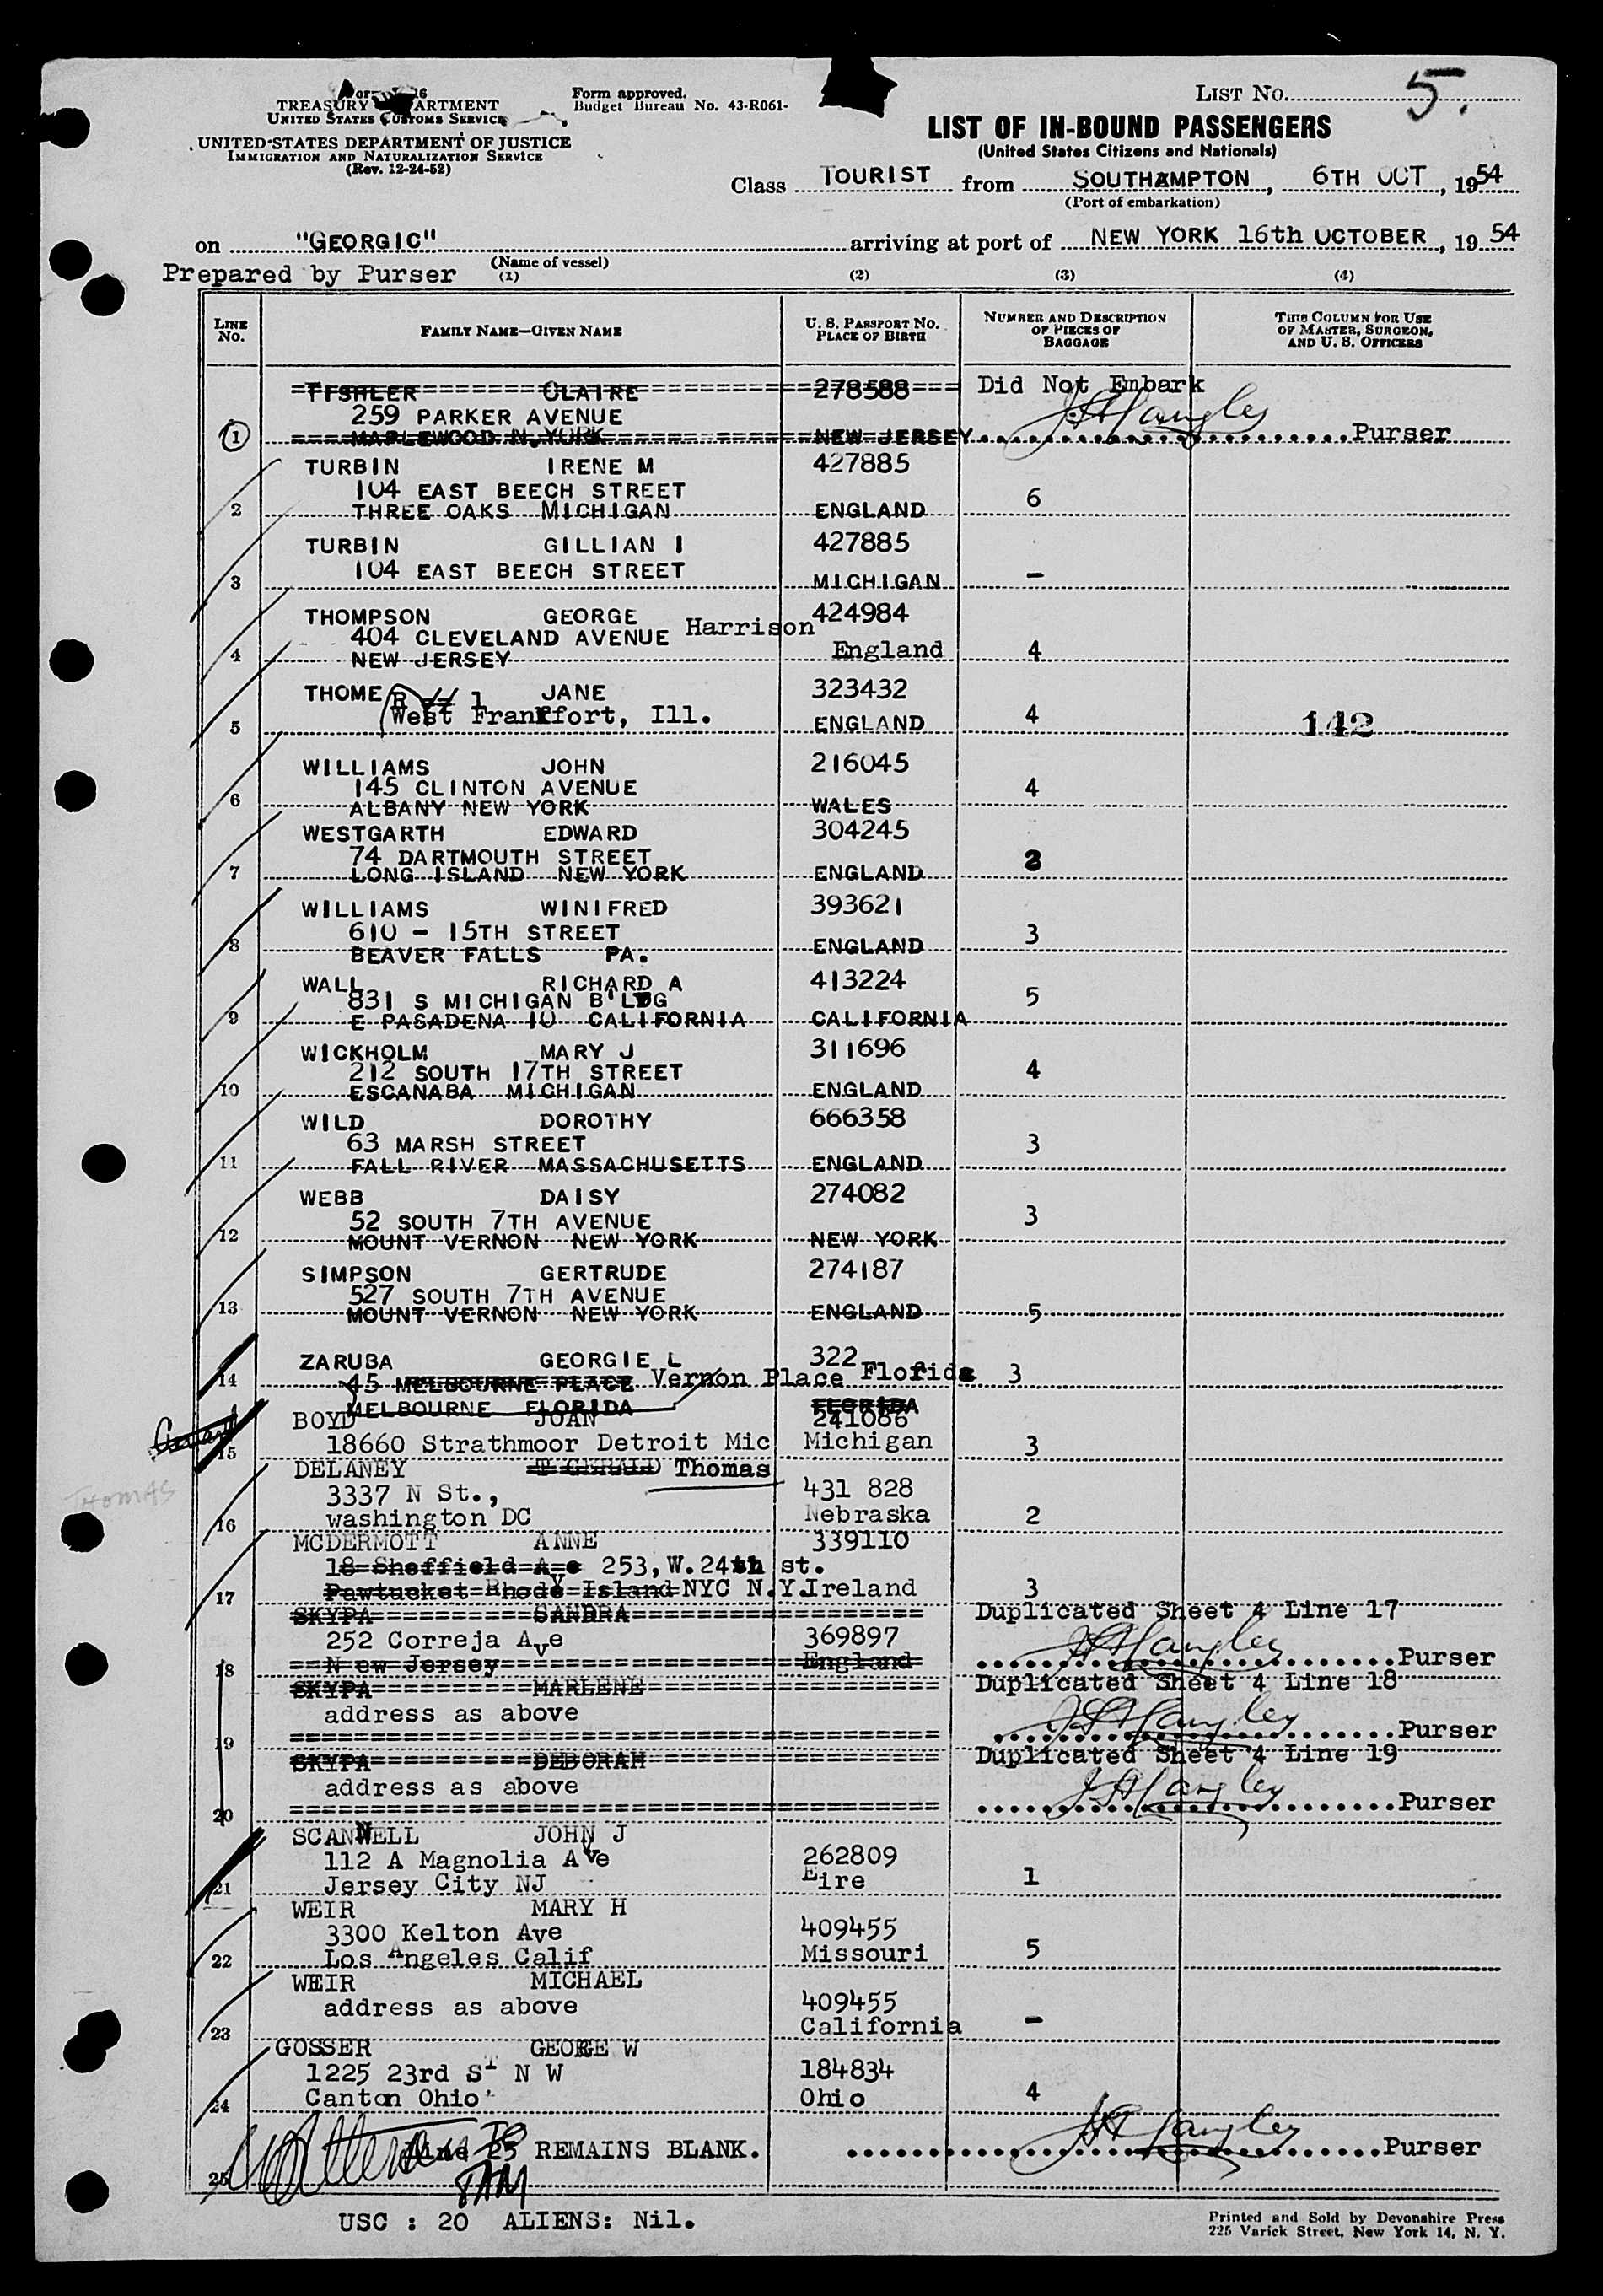 TREASURY DEPARTMENT
UNITED STATES CUSTOMS SERVICE
UNITED STATES DEPARTMENT OF JUSTICE
IMMIGRATION AND NATURALIZATION SERVICE
(Rev. 12-24-52)
Form approved.
Budget Bureau No. 43-R061-
LIST NO. 5.
LIST OF IN-BOUND PASSENGERS
(United States Citizens and Nationals)
Class TOURIST from SOUTHAMPTON, 6TH OCT, 1954
(Port of embarkation)
on "GEORGIC" arriving at port of NEW YORK 16th OCTOBER, 1954
(Name of vessel)
Prepared by Purser (1) (2) (3) (4)
LINE NO. FAMILY NAME—GIVEN NAME U. S. PASSPORT NO. PLACE OF BIRTH NUMBER AND DESCRIPTION OF PIECES OF BAGGAGE THIS COLUMN FOR USE OF MASTER, SURGEON, AND U. S. OFFICERS
TISHLER CLAIRE 278588 Did Not Embark
259 PARKER AVENUE
1 MAPLEWOOD N.YORK NEW JERSEY Purser
TURBIN IRENE M 427885
104 EAST BEECH STREET 6
2 THREE OAKS MICHIGAN ENGLAND
TURBIN GILLIAN I 427885
104 EAST BEECH STREET
3 MICHIGAN -
THOMPSON GEORGE 424984
404 CLEVELAND AVENUE Harrison
4 NEW JERSEY England 4
THOME JANE 323432
R 1
West Frankfort, Ill.
5 ENGLAND 4 142
WILLIAMS JOHN 216045
145 CLINTON AVENUE 4
6 ALBANY NEW YORK WALES
WESTGARTH EDWARD 304245
74 DARTMOUTH STREET
7 LONG ISLAND NEW YORK ENGLAND
WILLIAMS WINIFRED 393621
610 - 15TH STREET 3
8 BEAVER FALLS PA. ENGLAND
WALL RICHARD A 413224
831 S MICHIGAN B'LDG 5
9 E PASADENA 10 CALIFORNIA CALIFORNIA
WICKHOLM MARY J 311696
212 SOUTH 17TH STREET 4
10 ESCANABA MICHIGAN ENGLAND
WILD DOROTHY 666358
63 MARSH STREET 3
11 FALL RIVER MASSACHUSETTS ENGLAND
WEBB DAISY 274082
52 SOUTH 7TH AVENUE 3
12 MOUNT VERNON NEW YORK NEW YORK
SIMPSON GERTRUDE 274187
527 SOUTH 7TH AVENUE
13 MOUNT VERNON NEW YORK ENGLAND 5
ZARUBA GEORGIE L 322
14 45 MELBOURNE PLACE Vernon Place Florida 3
MELBOURNE FLORIDA FLORIDA
BOYD JOAN 241086
15 18660 Strathmoor Detroit Mic Michigan 3
DELANEY T GERALD Thomas
3337 N St., 431 828
THOMAS
16 washington DC Nebraska 2
MCDERMOTT ANNE 339110
18 Sheffield A e 253, W. 24th st.
17 Pawtucket Rhode Island NYC N.Y. Ireland 3
SKYPA SANDRA Duplicated Sheet 4 Line 17
252 Correja Ave 369897
18 N ew Jersey England Purser
SKYPA MARLENE Duplicated Sheet 4 Line 18
address as above
19 Purser
SKYPA DEBORAH Duplicated Sheet 4 Line 19
address as above
20 Purser
SCANNELL JOHN J
112 A Magnolia Ave 262809
21 Jersey City NJ Eire 1
WEIR MARY H
3300 Kelton Ave 409455
22 Los Angeles Calif Missouri 5
WEIR MICHAEL
address as above 409455
23 California -
GOSSER GEORGE W
1225 23rd St N W 184834
24 Canton Ohio Ohio 4
Line 25 REMAINS BLANK. Purser
25
USC : 20 ALIENS: Nil.
Printed and Sold by Devonshire Press
225 Varick Street, New York 14, N. Y.